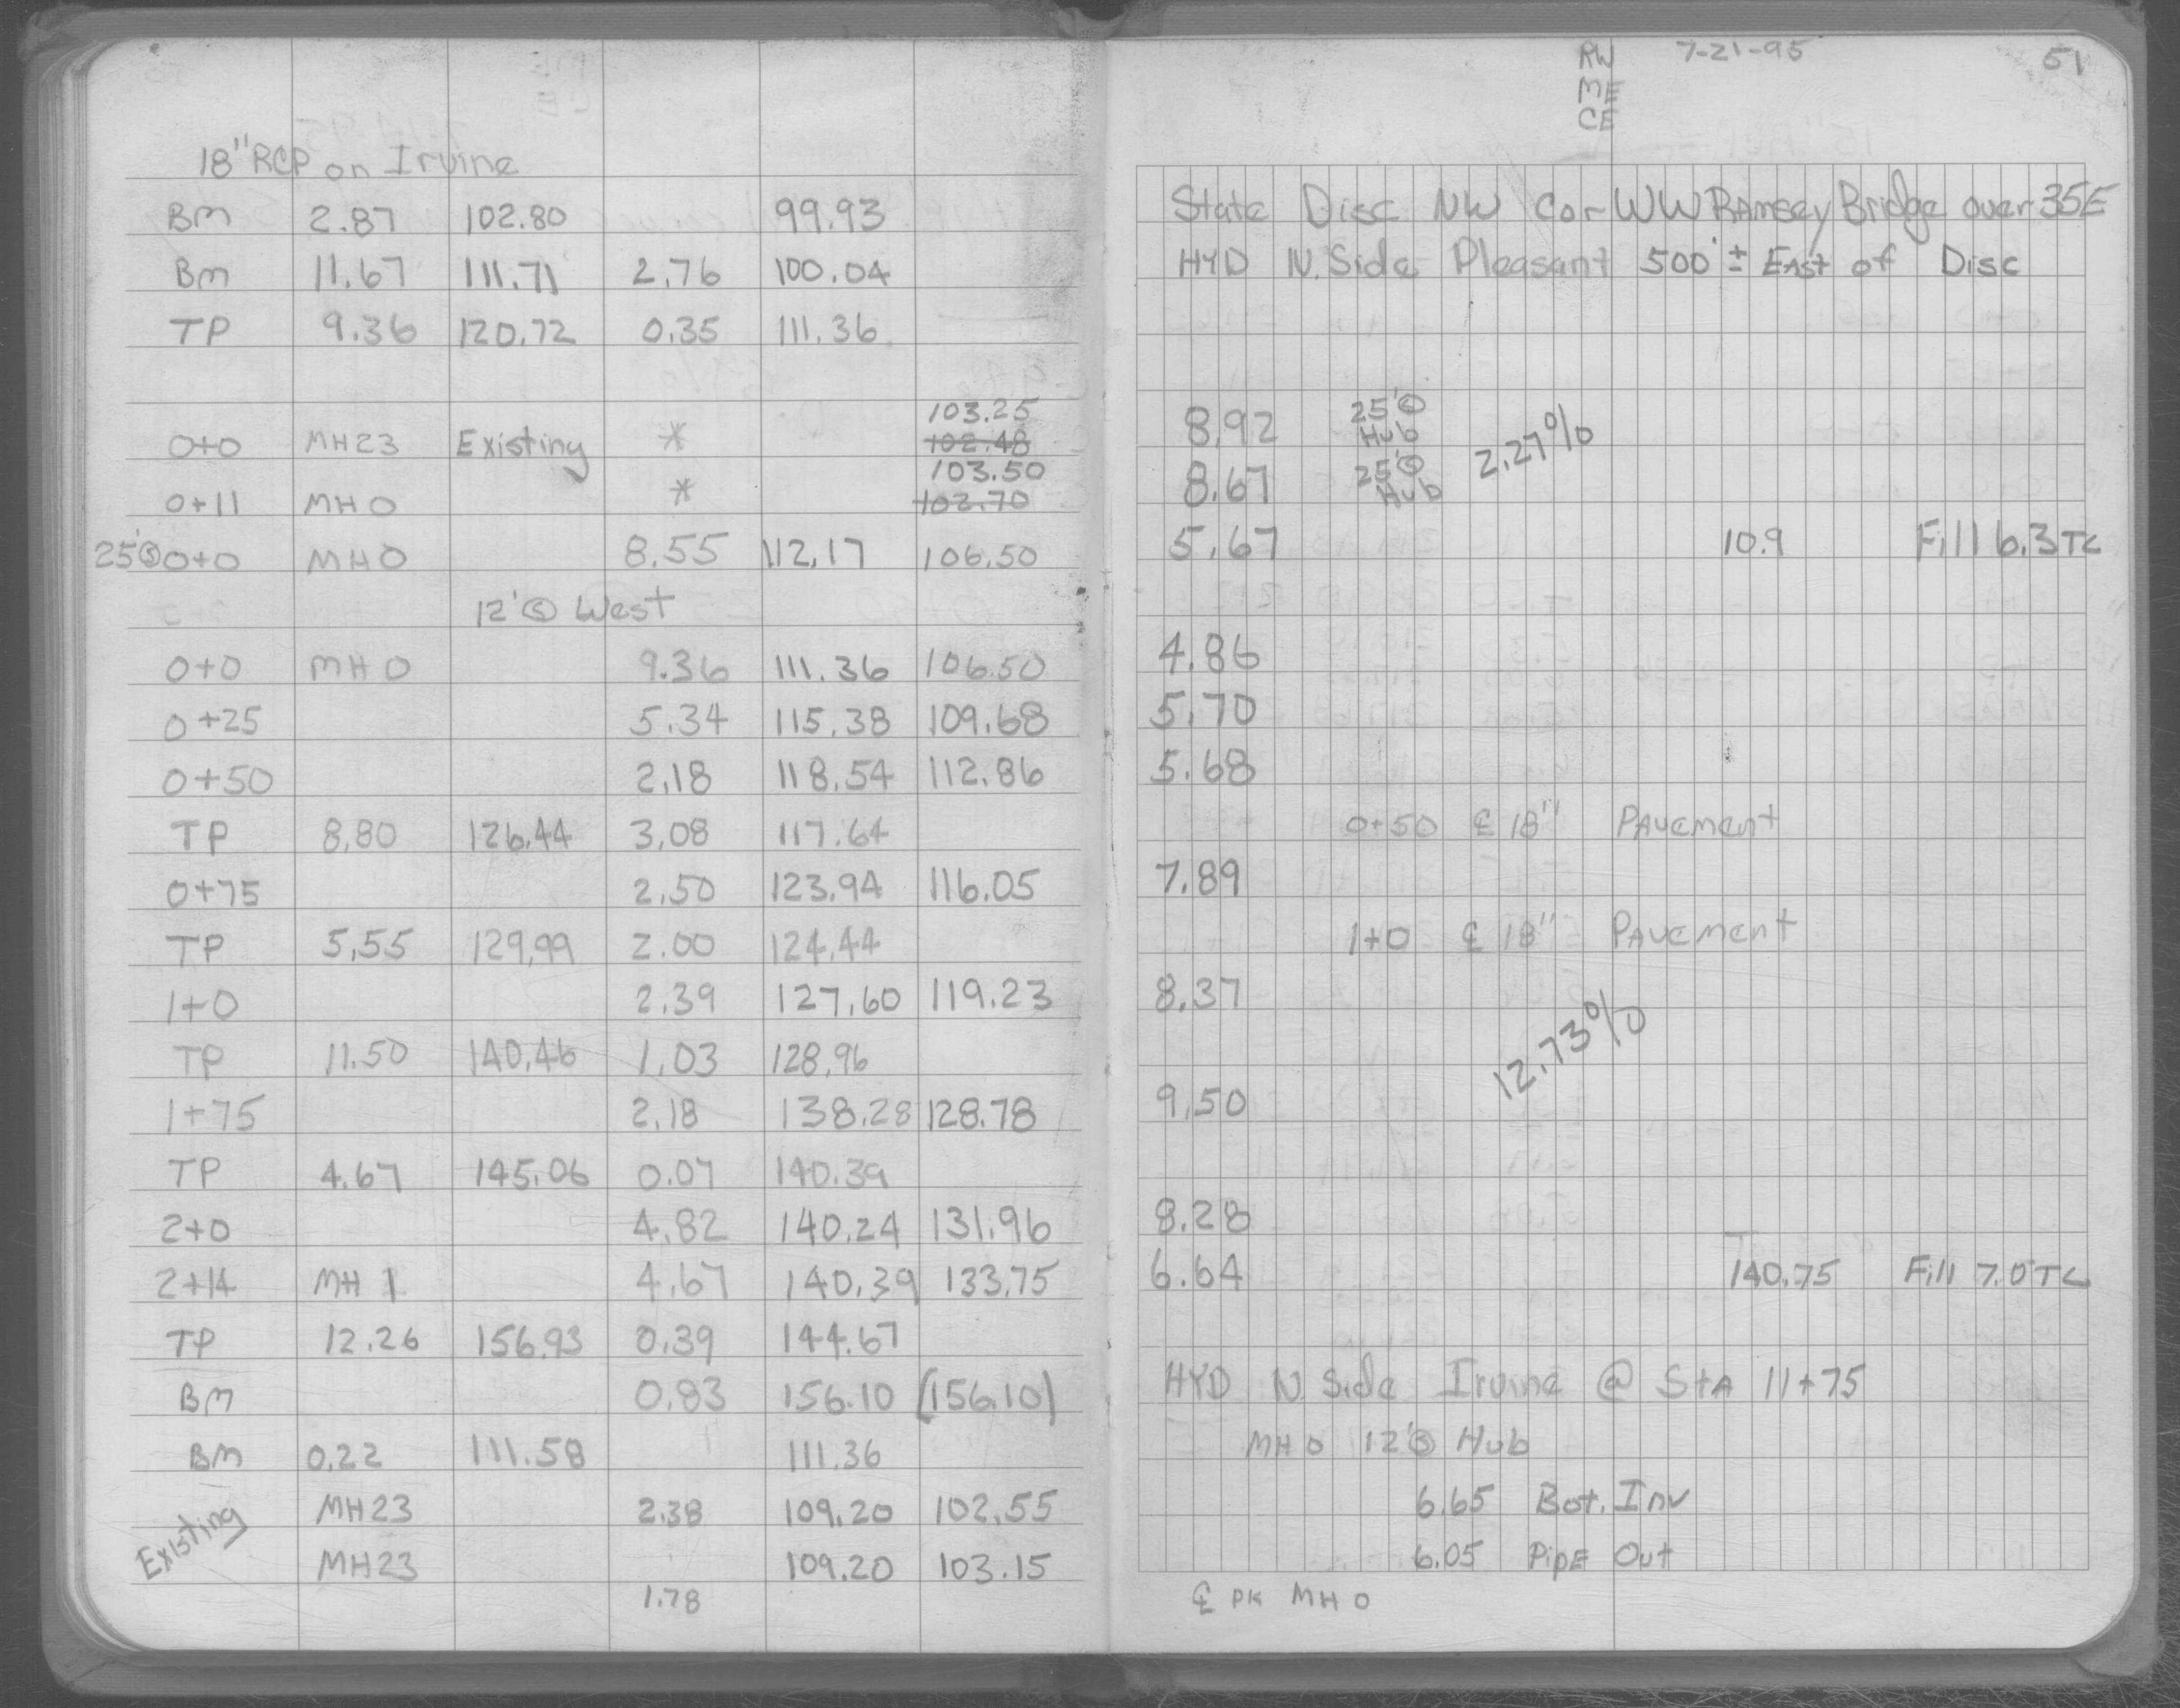 18" RCP on Irvine
BM 2.87 102.80 99.93
BM 11.67 111.71 2.76 100.04
TP 9.36 120.72 0.35 111.36
103.25
0+0 MH23 Existing * 102.48
103.50
0+11 MH0 * 102.70
25'Ⓢ 0+0 MH0 8.55 112.17 106.50
12'Ⓢ West
0+0 MH0 9.36 111.36 106.50
0+25 5.34 115.38 109.68
0+50 2.18 118.54 112.86
TP 8.80 126.44 3.08 117.64
0+75 2.50 123.94 116.05
TP 5.55 129.99 2.00 124.44
1+0 2.39 127.60 119.23
TP 11.50 140.46 1.03 128.96
1+75 2.18 138.28 128.78
TP 4.67 145.06 0.07 140.39
2+0 4.82 140.24 131.96
2+14 MH 1 4.67 140.39 133.75
TP 12.26 156.93 0.39 144.67
BM 0.83 156.10 (156.10)
BM 0.22 111.58 111.36
Existing MH23 2.38 109.20 102.55
MH23 109.20 103.15
1.78
RW 7-21-95 51
ME
CE
State Disc NW Cor WW Ramsey Bridge over 35E
HYD N. Side Pleasant 500'± East of Disc
8.92 25'Ⓢ Hub
2.27%
8.67 25'Ⓢ Hub
5.67 10.9 Fill 6.3 TC
4.86
5.70
5.68
0+50 ℄ 18" Pavement
7.89
1+0 ℄ 18" Pavement
8.37
12.73%
9.50
8.28
6.64 140.75 Fill 7.0 TC
HYD N. Side Irvine @ Sta 11+75
MH 0 12'Ⓢ Hub
6.65 Bot. Inv
6.05 Pipe Out
℄ PK MH 0